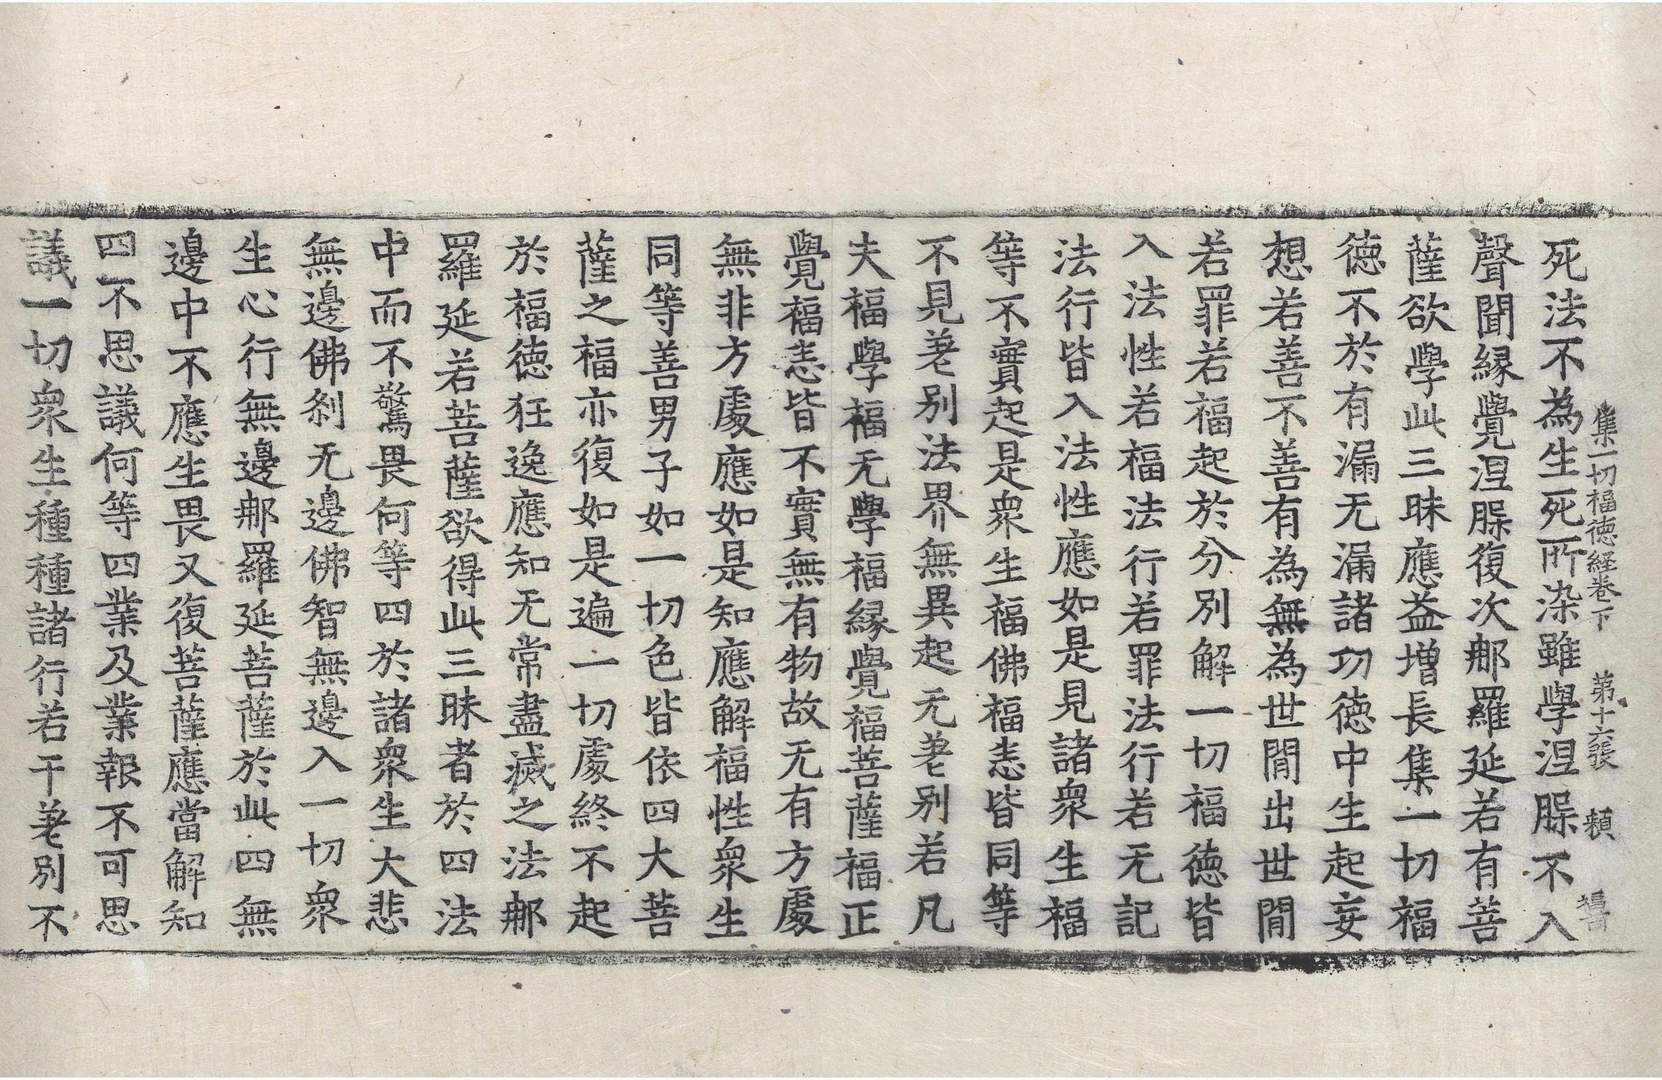 集一切福徳経卷下　第十六張　頼
死法不為生死所染雖學涅脲不入
聲聞縁覺涅脲復次那羅延若有菩
薩欲學此三昧應益增長集一切福
徳不於有漏无漏諸功徳中生起妄
想若善不善有為無為世閒出世閒
若罪若福起於分別解一切福徳皆
入法性若福法行若罪法行若无記
法行皆入法性應如是見諸衆生福
等不實起是衆生福佛福悉皆同等
不見差別法界無異起无差別若凡
夫福學福无學福縁覺福菩薩福正
覺福悉皆不實無有物故无有方處
無非方處應如是知應解福性衆生
同等善男子如一切色皆依四大菩
薩之福亦復如是遍一切處終不起
於福徳狂逸應知无常盡滅之法那
羅延若菩薩欲得此三昧者於四法
中而不驚畏何等四於諸衆生大悲
無邊佛刹无邊佛智無邊入一切衆
生心行無邊那羅延菩薩於此四無
邊中不應生畏又復菩薩應當解知
四不思議何等四業及業報不可思
議一切衆生種種諸行若干差別不